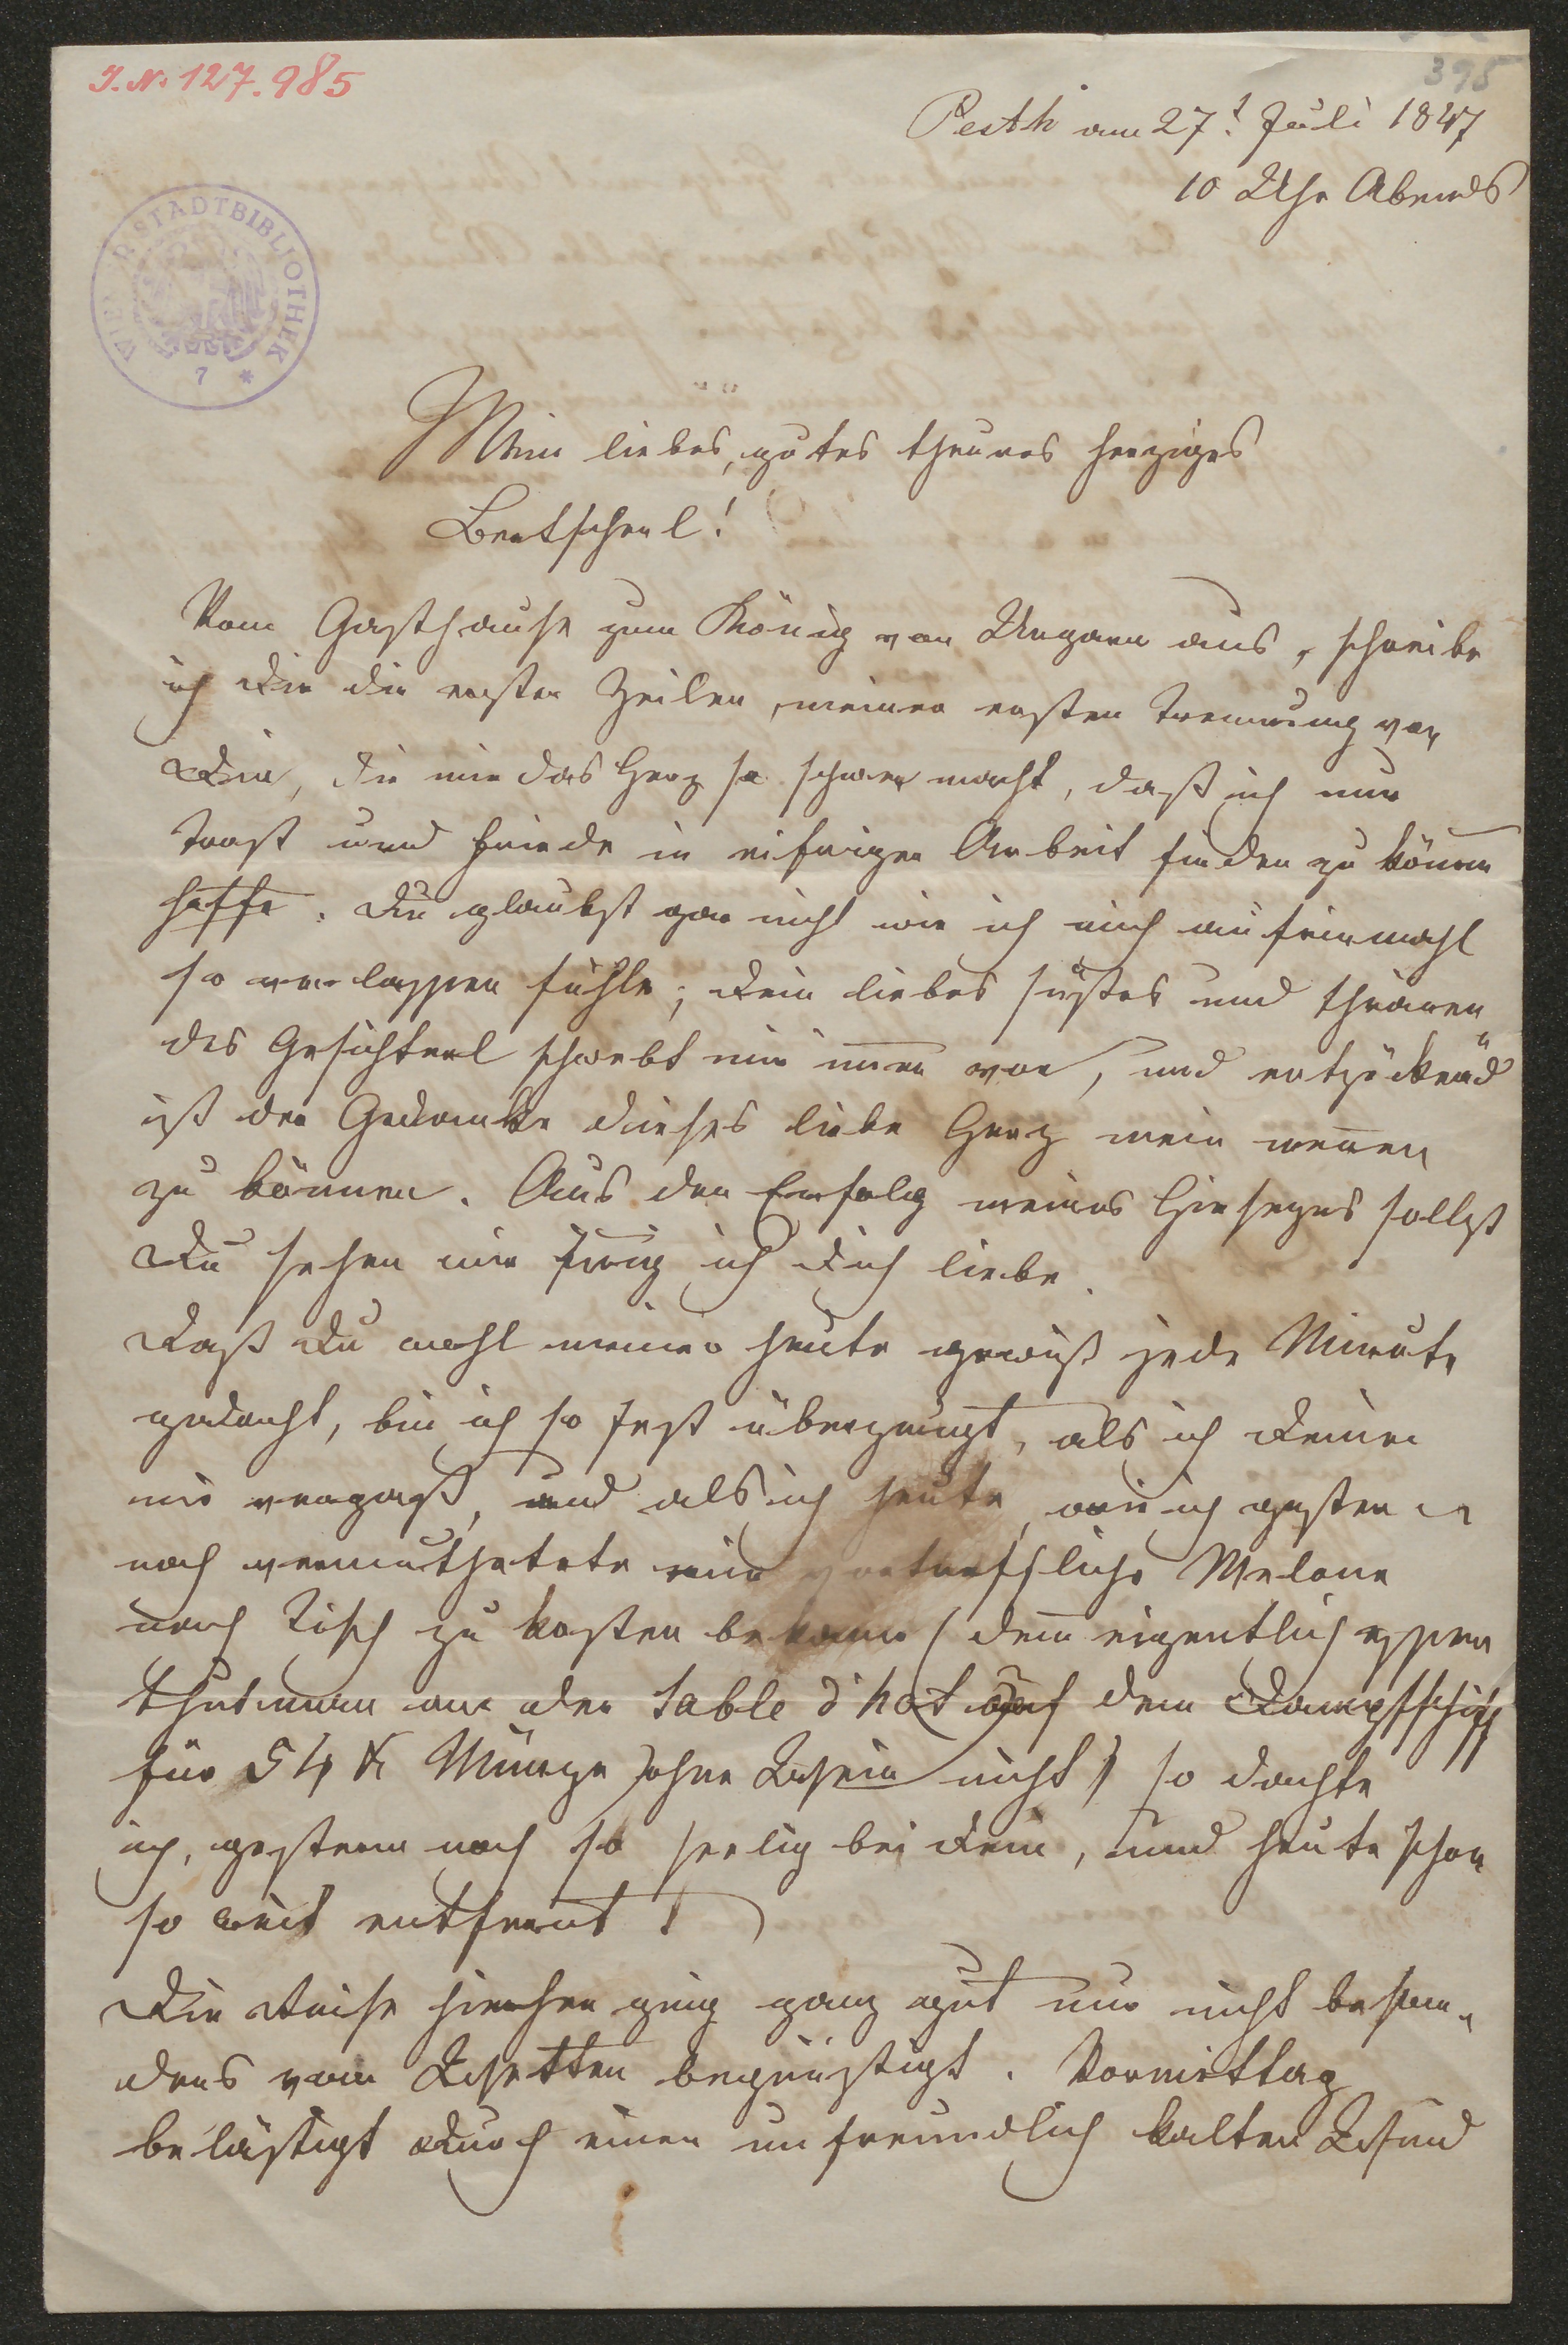 J. N. 127.985
395
Pesth am 27t Juli 1847
10 Uhr Abends
WIENER STADTBIBLIOTHEK
7 *
Mein liebes, gutes theures herziges
Bertscherl!
Vom Gasthause zum König von Ungarn aus, schreibe
ich Dir die ersten Zeilen, meiner ersten Trennung von
Dir, die mir das Herz so schwer macht, daß ich nur
Trost und Friede in eifriger Arbeit finden zu können
hoffe. Du glaubst gar nicht wie ich mich auf einmahl
so verlassen fühle; Dein liebes süßes und thränen„
des Gesichterl schwebt mir im̅er vor, und entzückend
ist der Gedanke dieses liebe Herz mein nen̅en
zu können. Aus den Erfolg meines Hierseyns sollst
Du sehen wie innig ich Dich liebe.
Daß Du wohl meiner heute gewiß jede Minute
gedacht, bin ich so fest überzeugt, als ich Deiner
nie vergaß, und als ich heute, wie ich gestern
noch vermuthetete eine vortreffliche Melone
nach Tisch zu kosten bekam (den̅ eigentlich essen
thut man an der table d'hot auf dem Dampfschiff
für 54 x Münze ohne Wein nicht) so dachte
ich, gestern noch so seelig bei Dir, und heute schon
so weit entfernt!
Die Reise hierher ging ganz gut nur nicht beson„
ders vom Wetter begünstigt. Vormittag
belästigt durch einen unfreundlich kalten Wind